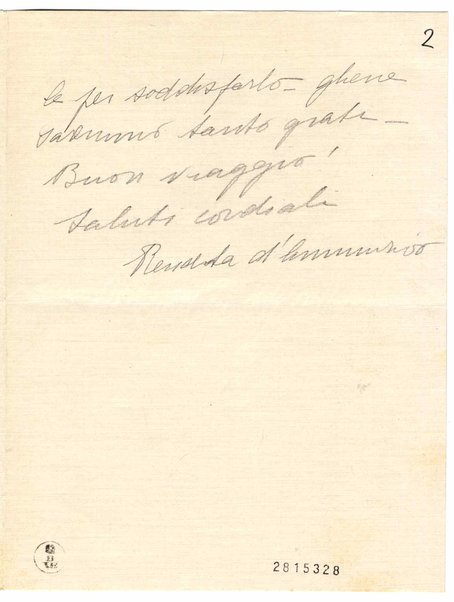 2
le per soddisfarlo - gliene
saremmo tanto grati -
Buon viaggio!
Saluti cordiali
Renata d'Annunzio
2815328